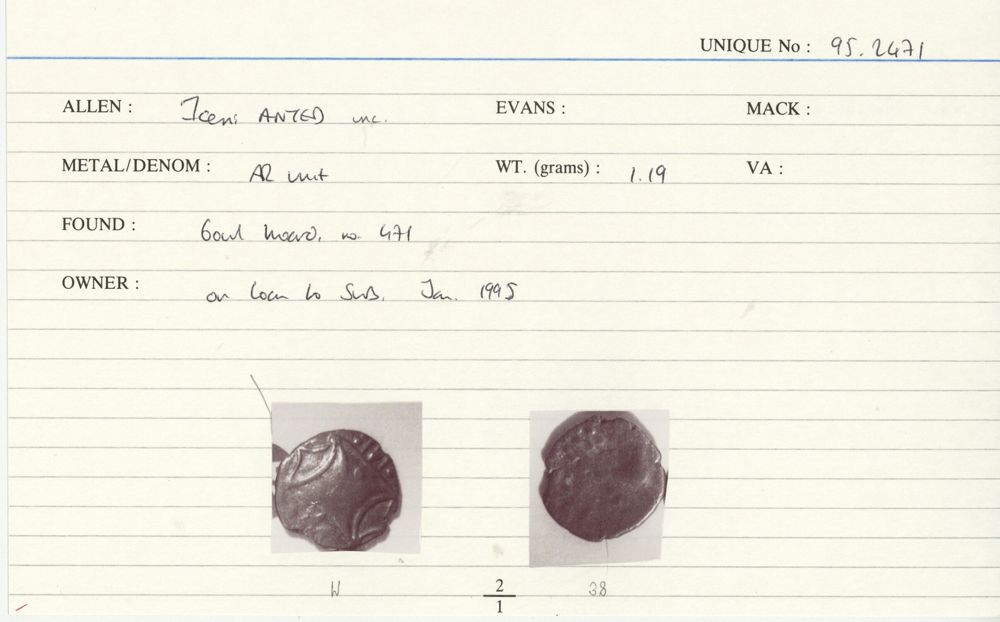 UNIQUE No : 95.2471
ALLEN : Iceni ANTED unc. EVANS : MACK :
METAL/DENOM : AR unit WT. (grams) : 1.19 VA :
FOUND : hoard, no. 471
OWNER : on loan to Jan. 1995
2
W 38
1